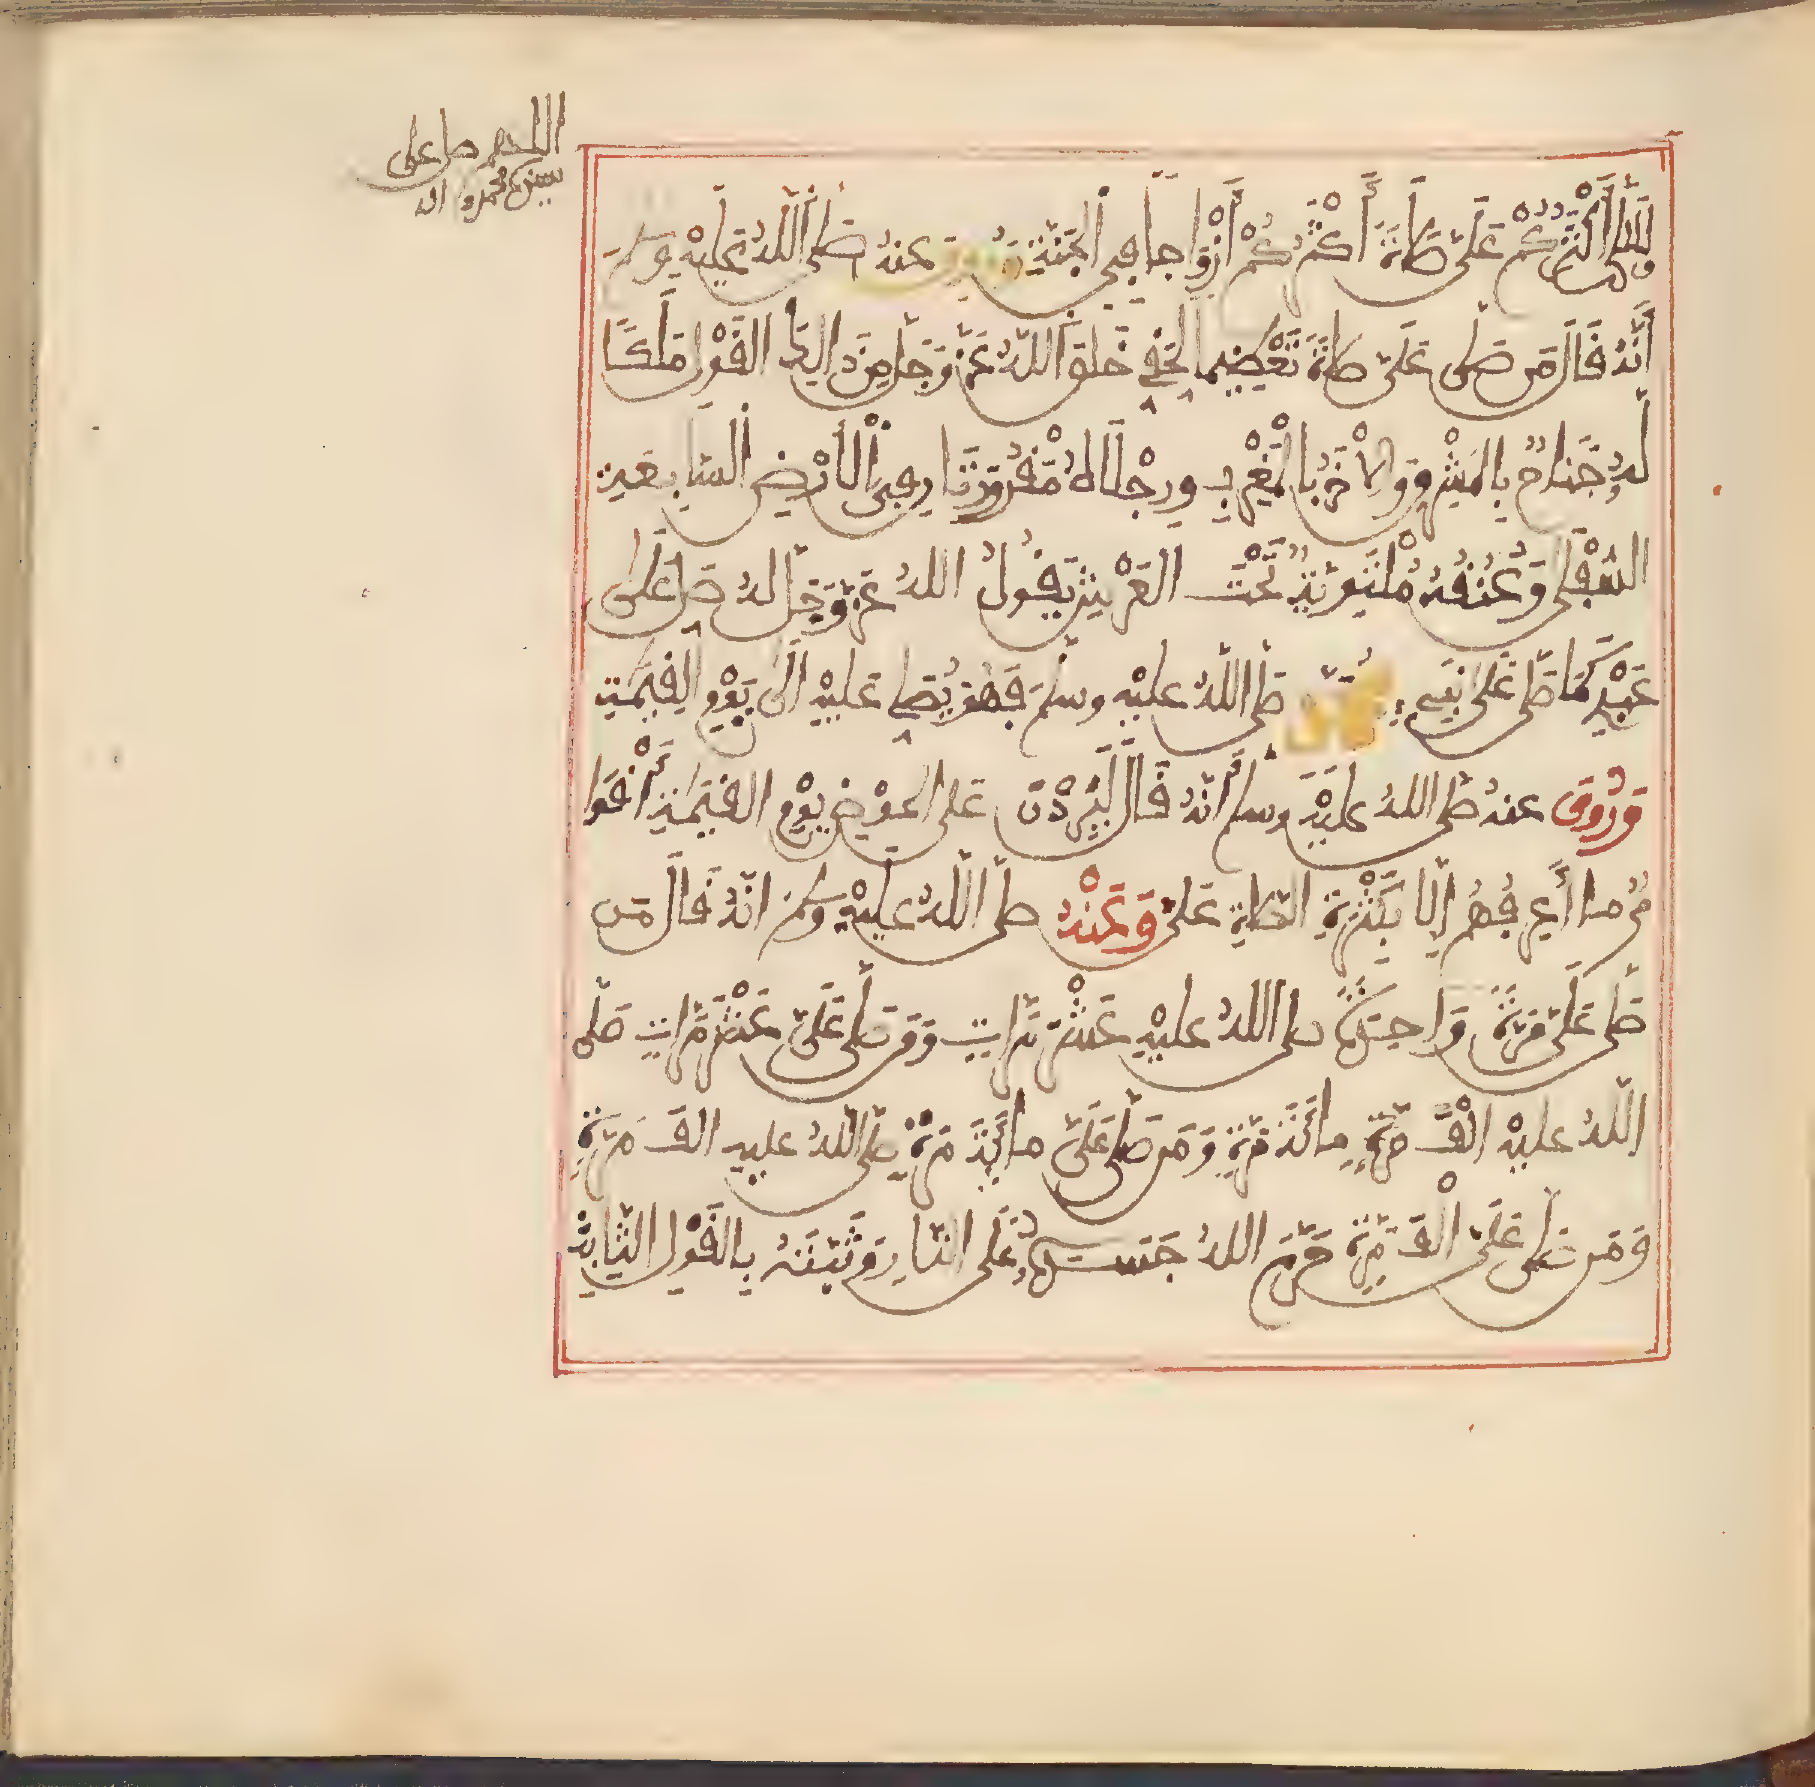 اللهم صل على
سيدنا محمد واله
أكثركم على صلاة أكثركم أزواجا في الجنة وروي عنه صلى الله عليه وسلم
أنه قال من صلى علي صلاة تعظيما لحقي خلق الله عز وجل من ذالك القول ملكا
له جناح بالمشرق والاخر بالمغرب ورجلاه مقرورتان في الأرض السابعة
السفلى وعنقه ملتوية تحت العرش يقول الله عز وجل له صل على
عبدي كما صلى على نبيي صلى الله عليه وسلم فهو يصلي عليه الى يوم القيمة
وروي عنه صلى الله عليه وسلم أنه قال ليردن على الحوض يوم القيمة أقوا
م ما أعرفهم إلا بكثرة الصلاة علي وعنه صلى الله عليه وسلم انه قال من
صلى علي مرة واحدة صلى الله عليه عشر مرات ومن صلى علي عشر مرات صلى
الله عليه مائة مرة ومن صلى علي مائة مرة صلى الله عليه الف مرة
ومن صلى علي الف مرة حرم الله جسده على النار وثبته بالقول الثابت